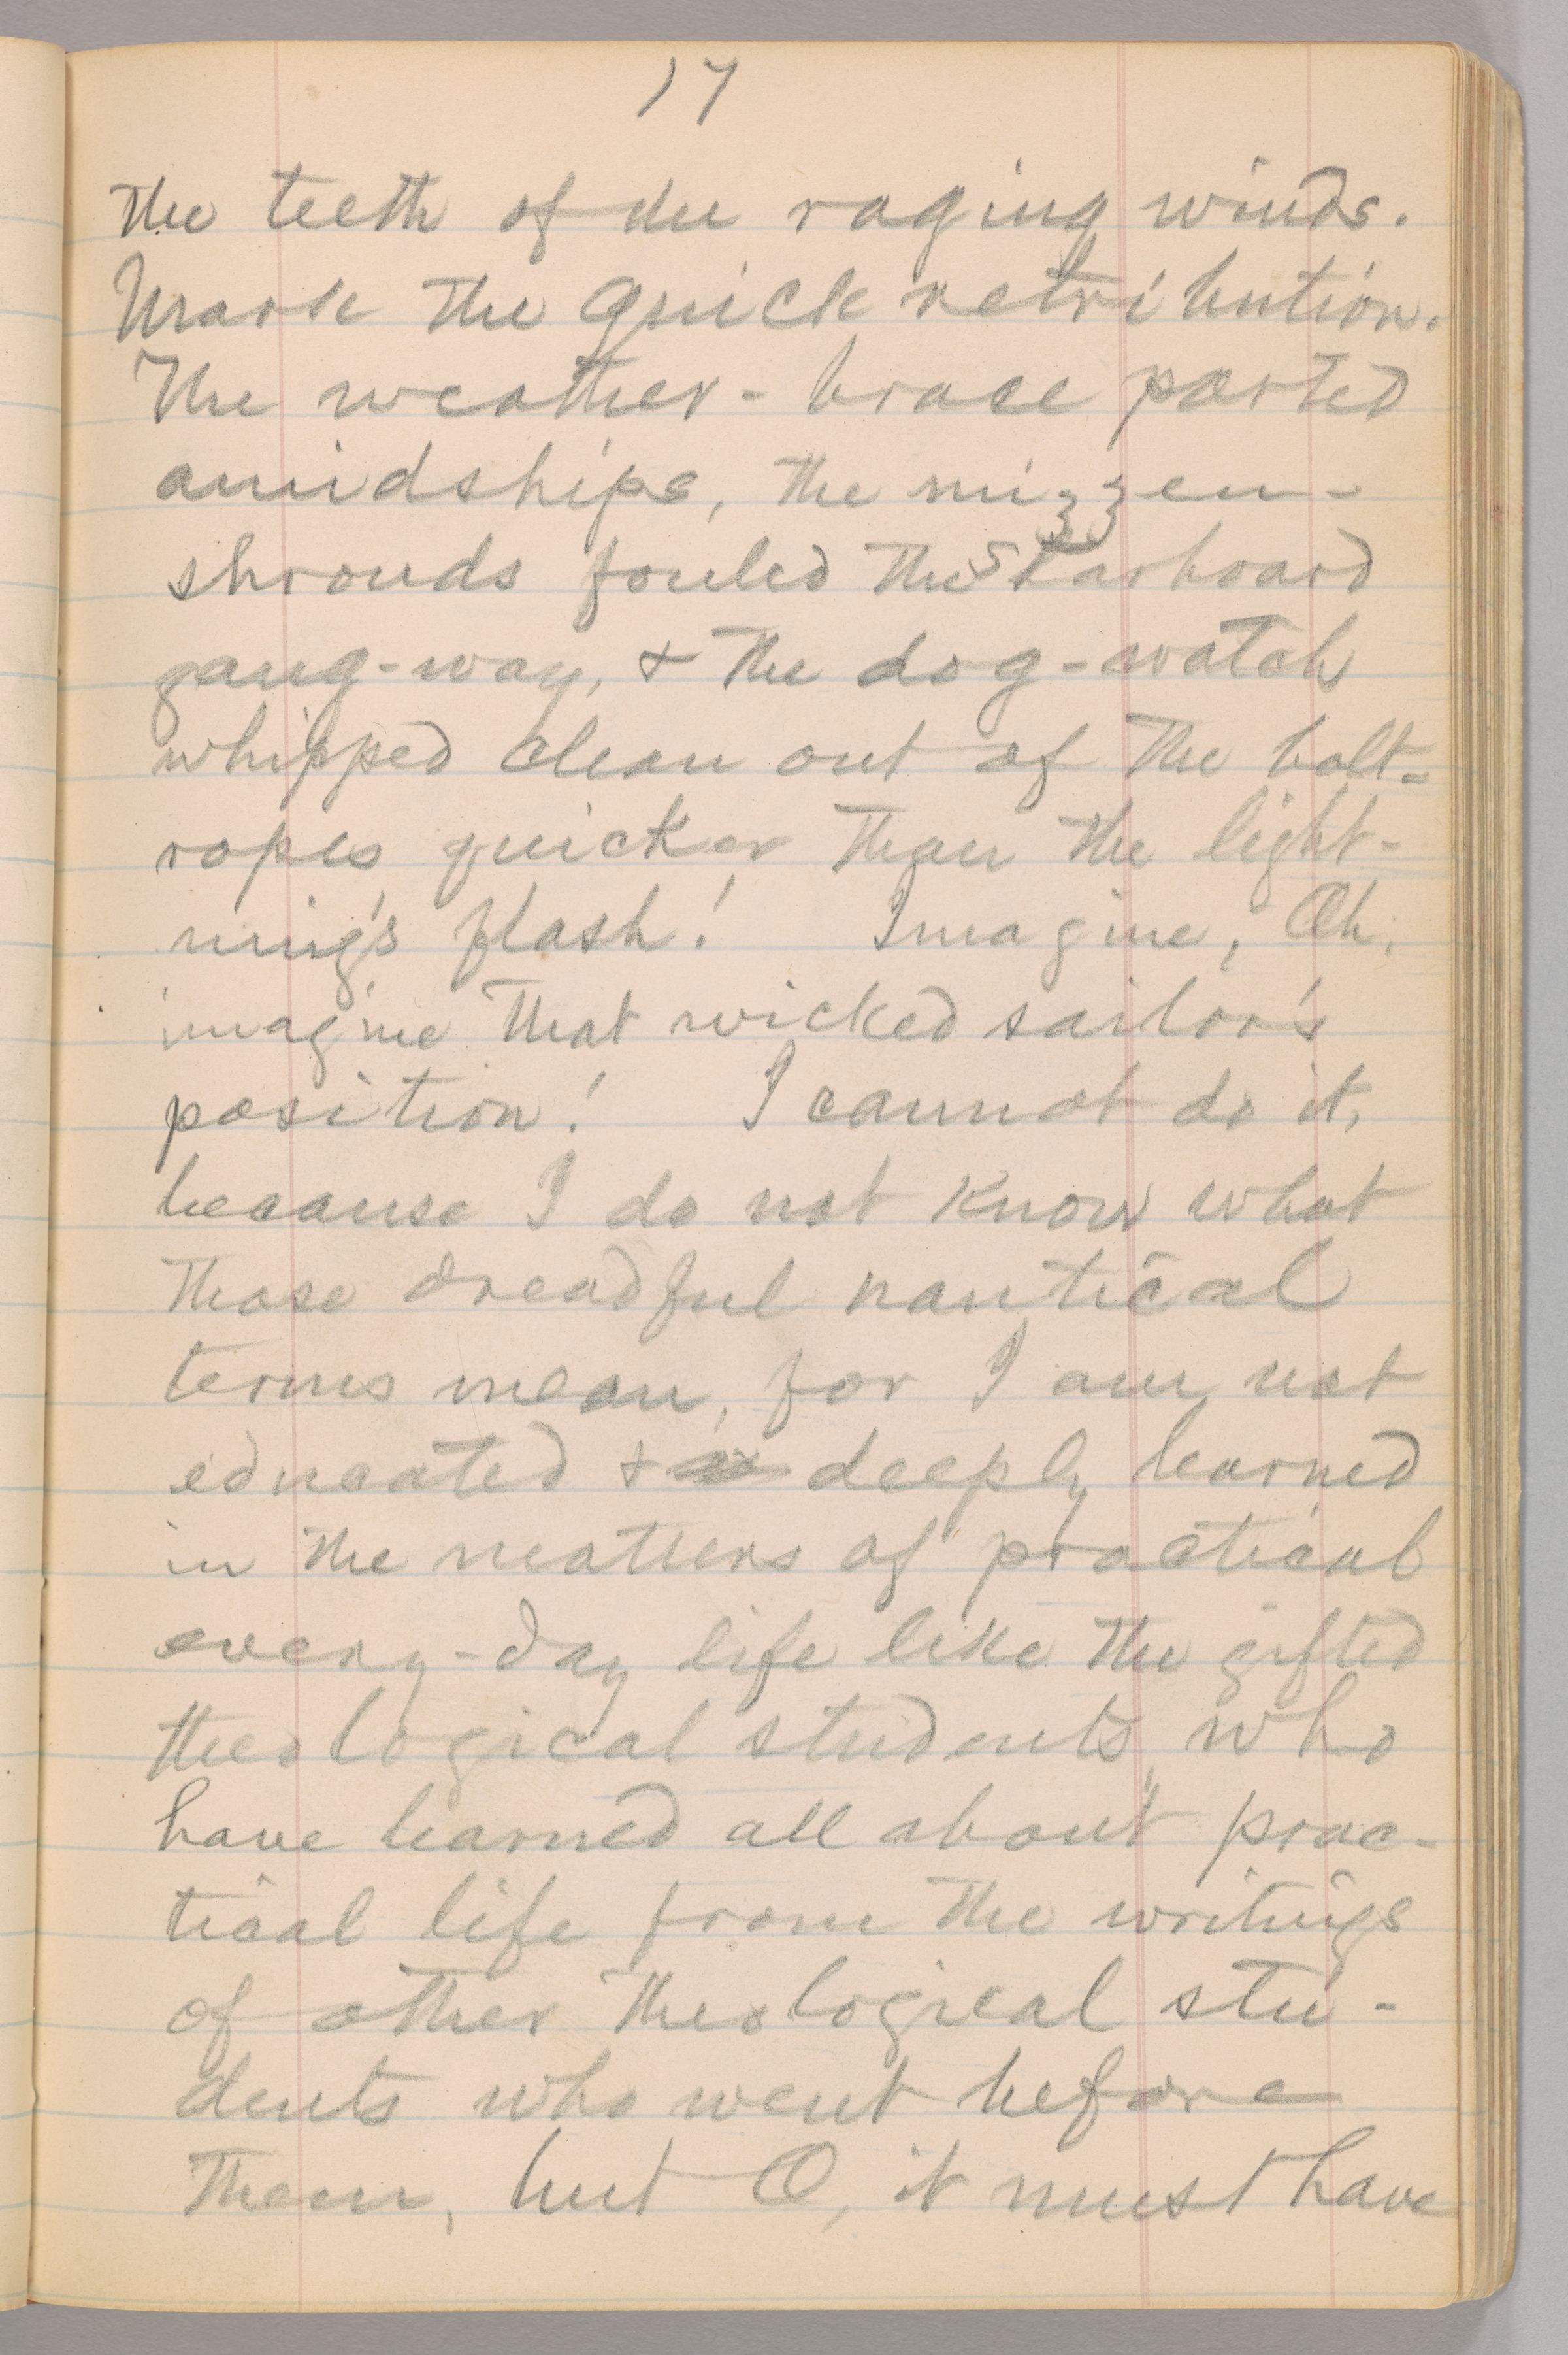 17
the teeth of the raging winds.
Mark the quick retribution.
The weather-brace parted
amidships, the mizzen-
shrouds fouled the starboard
gang-way, & the dog-watch
whipped clean out of the bolt-
ropes quicker than the light-
ning's flash! Imagine, Oh,
imagine that wicked sailor's
position! I cannot do it,
because I do not know what
those dreadful nautical
terms mean, for I am not
educated & deeply learned
in the matters of practical
every-day life like the gifted
theological students, who
have learned all about prac-
tical life from the writings
of other theological stu-
dents who went before
them, but O, it must have